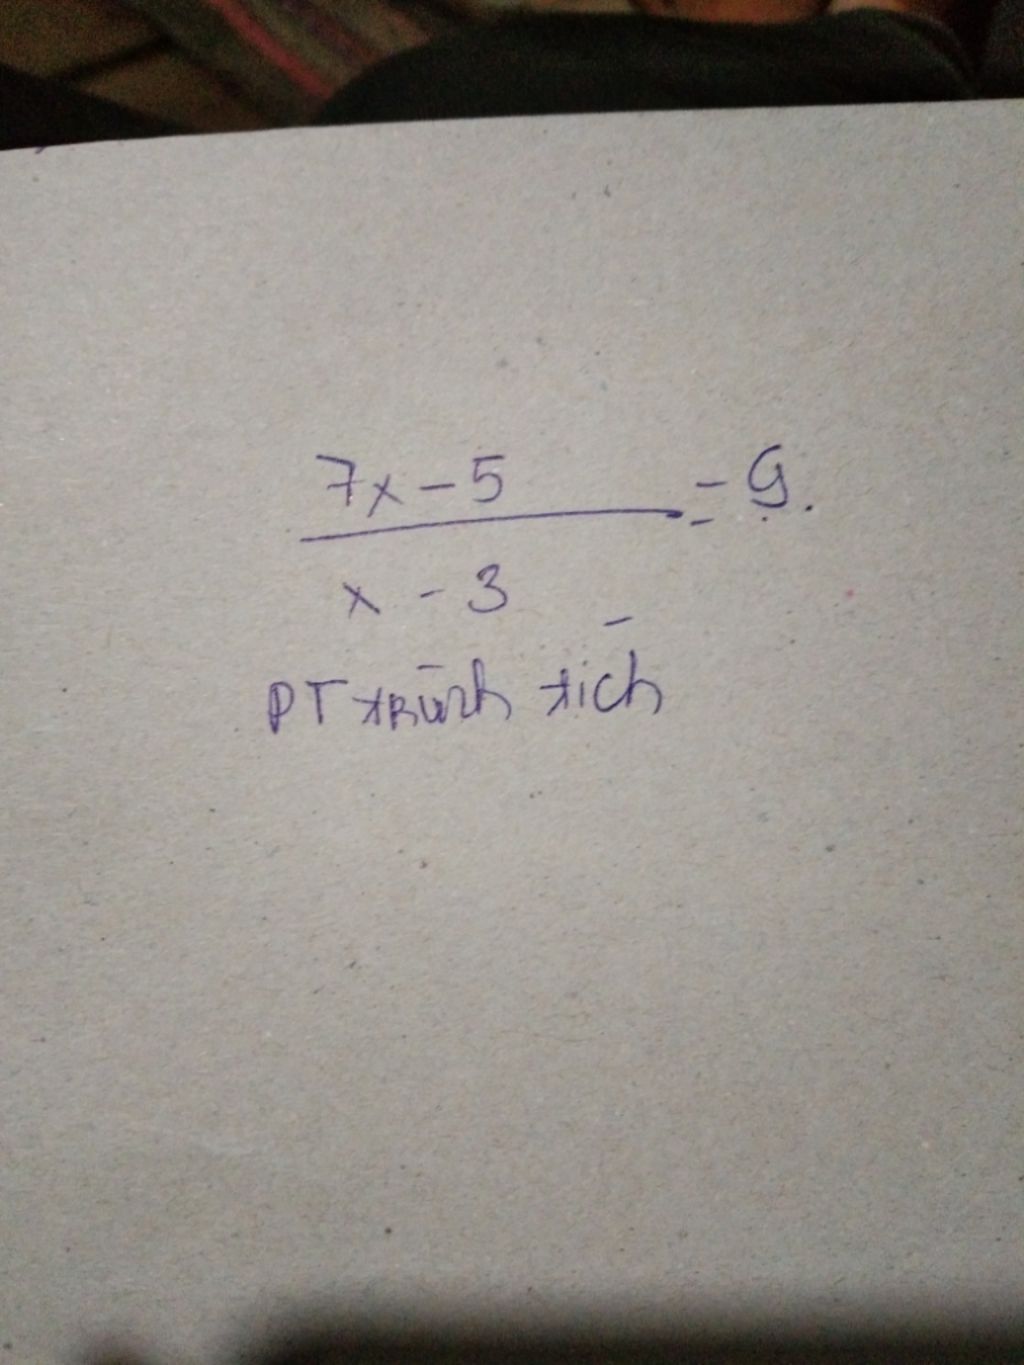 7x - 5 = 9.
x - 3
PT trình tích